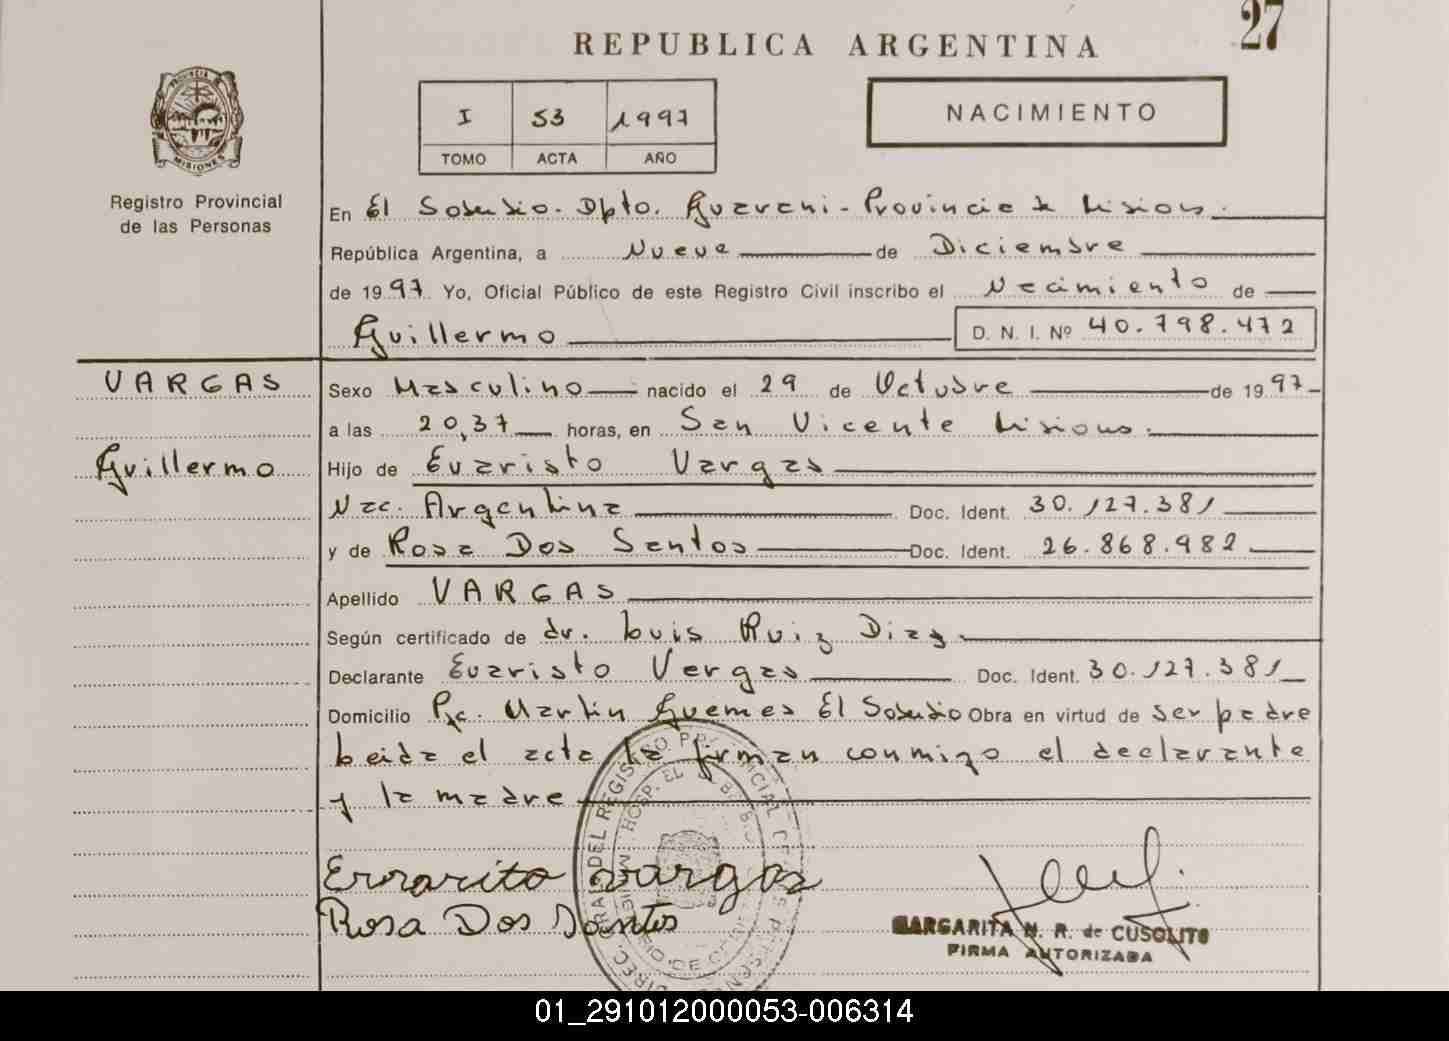 27
REPUBLICA ARGENTINA
I 53 1997
TOMO ACTA AÑO
NACIMIENTO
PROVINCIA DE MISIONES
Registro Provincial
de las Personas
En El Soberbio. Dpto. Guarani - Provincia de Misiones.
República Argentina, a Nueve de Diciembre
de 1997 Yo, Oficial Público de este Registro Civil inscribo el Nacimiento de
Guillermo D. N. I. Nº 40.798.472
VARGAS
Guillermo
Sexo Masculino nacido el 29 de Octubre de 1997
a las 20,37 horas, en San Vicente Misiones.
Hijo de Evaristo Vargas
Nac. Argentina Doc. Ident. 30.127.381
y de Rosa Dos Santos Doc. Ident. 26.868.982
Apellido VARGAS
Según certificado de dr. Luis Ruiz Diaz.
Declarante Evaristo Vargas Doc. Ident. 30.127.381
Domicilio Pje. Martin Guemes El Soberbio Obra en virtud de ser padre
Leida el acta la firman conmigo el declarante
y la madre
Vargas
Rosa Dos Santos
MARGARITA N. R. de CUSOLITO
FIRMA AUTORIZADA
01_291012000053-006314